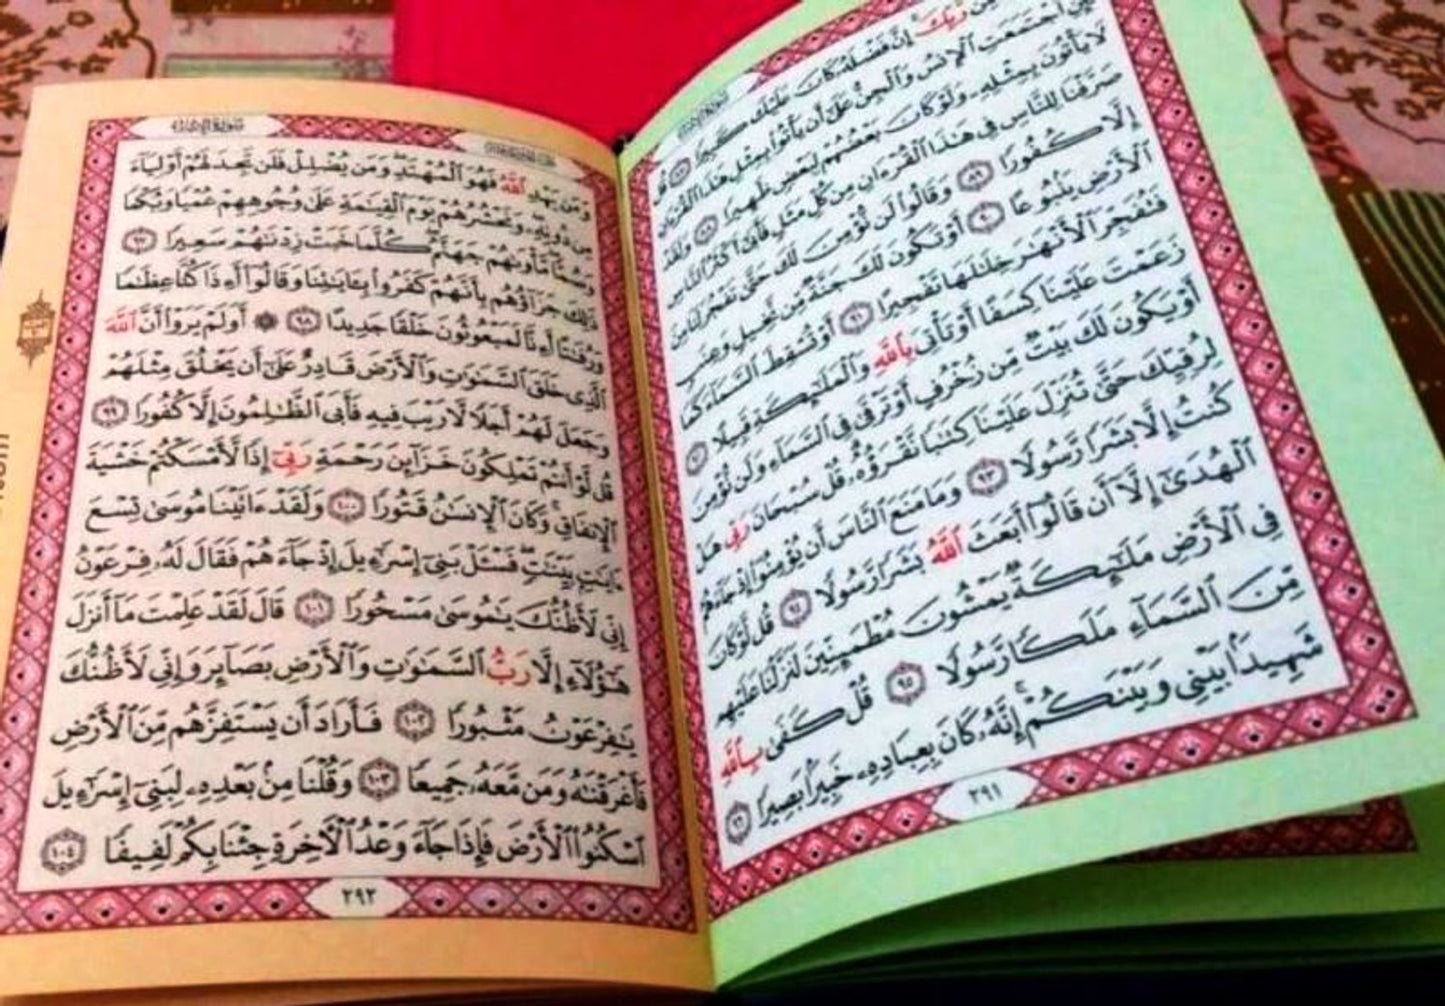 مِّن رَّبِّكَ إِنَّ فَضْلَهُۥ كَانَ عَلَيْكَ كَبِيرًا ٨٧ قُل
ٱجْتَمَعَتِ ٱلْإِنسُ وَٱلْجِنُّ عَلَىٰٓ أَن يَأْتُوا۟ بِمِثْلِ هَـٰذَا ٱلْقُرْءَانِ
لَا يَأْتُونَ بِمِثْلِهِۦ وَلَوْ كَانَ بَعْضُهُمْ لِبَعْضٍ ظَهِيرًا ٨٨ وَلَقَدْ
صَرَّفْنَا لِلنَّاسِ فِى هَـٰذَا ٱلْقُرْءَانِ مِن كُلِّ مَثَلٍ فَأَبَىٰٓ أَكْثَرُ ٱلنَّاسِ
إِلَّا كُفُورًا ٨٩ وَقَالُوا۟ لَن نُّؤْمِنَ لَكَ حَتَّىٰ تَفْجُرَ لَنَا مِنَ
ٱلْأَرْضِ يَنۢبُوعًا ٩٠ أَوْ تَكُونَ لَكَ جَنَّةٌ مِّن نَّخِيلٍ وَعِنَبٍ
فَتُفَجِّرَ ٱلْأَنْهَـٰرَ خِلَـٰلَهَا تَفْجِيرًا ٩١ أَوْ تُسْقِطَ ٱلسَّمَآءَ كَمَا
زَعَمْتَ عَلَيْنَا كِسَفًا أَوْ تَأْتِىَ بِٱللَّهِ وَٱلْمَلَـٰٓئِكَةِ قَبِيلًا ٩٢
أَوْ يَكُونَ لَكَ بَيْتٌ مِّن زُخْرُفٍ أَوْ تَرْقَىٰ فِى ٱلسَّمَآءِ وَلَن نُّؤْمِنَ
لِرُقِيِّكَ حَتَّىٰ تُنَزِّلَ عَلَيْنَا كِتَـٰبًا نَّقْرَؤُهُۥ قُلْ سُبْحَانَ رَبِّى هَلْ
كُنتُ إِلَّا بَشَرًا رَّسُولًا ٩٣ وَمَا مَنَعَ ٱلنَّاسَ أَن يُؤْمِنُوٓا۟ إِذْ جَآءَهُمُ
ٱلْهُدَىٰٓ إِلَّآ أَن قَالُوٓا۟ أَبَعَثَ ٱللَّهُ بَشَرًا رَّسُولًا ٩٤ قُل لَّوْ كَانَ
فِى ٱلْأَرْضِ مَلَـٰٓئِكَةٌ يَمْشُونَ مُطْمَئِنِّينَ لَنَزَّلْنَا عَلَيْهِم
مِّنَ ٱلسَّمَآءِ مَلَكًا رَّسُولًا ٩٥ قُلْ كَفَىٰ بِٱللَّهِ
شَهِيدًۢا بَيْنِى وَبَيْنَكُمْ إِنَّهُۥ كَانَ بِعِبَادِهِۦ خَبِيرًۢا بَصِيرًا ٩٦
٢٩١
سورة الإسراء
وَمَن يَهْدِ ٱللَّهُ فَهُوَ ٱلْمُهْتَدِ وَمَن يُضْلِلْ فَلَن تَجِدَ لَهُمْ أَوْلِيَآءَ
مِن دُونِهِۦ وَنَحْشُرُهُمْ يَوْمَ ٱلْقِيَـٰمَةِ عَلَىٰ وُجُوهِهِمْ عُمْيًا وَبُكْمًا
وَصُمًّا مَّأْوَىٰهُمْ جَهَنَّمُ كُلَّمَا خَبَتْ زِدْنَـٰهُمْ سَعِيرًا ٩٧
ذَٰلِكَ جَزَآؤُهُم بِأَنَّهُمْ كَفَرُوا۟ بِـَٔايَـٰتِنَا وَقَالُوٓا۟ أَءِذَا كُنَّا عِظَـٰمًا
وَرُفَـٰتًا أَءِنَّا لَمَبْعُوثُونَ خَلْقًا جَدِيدًا ٩٨ ۞ أَوَلَمْ يَرَوْا۟ أَنَّ ٱللَّهَ
ٱلَّذِى خَلَقَ ٱلسَّمَـٰوَٰتِ وَٱلْأَرْضَ قَادِرٌ عَلَىٰٓ أَن يَخْلُقَ مِثْلَهُمْ
وَجَعَلَ لَهُمْ أَجَلًا لَّا رَيْبَ فِيهِ فَأَبَى ٱلظَّـٰلِمُونَ إِلَّا كُفُورًا ٩٩
قُل لَّوْ أَنتُمْ تَمْلِكُونَ خَزَآئِنَ رَحْمَةِ رَبِّىٓ إِذًا لَّأَمْسَكْتُمْ خَشْيَةَ
ٱلْإِنفَاقِ وَكَانَ ٱلْإِنسَـٰنُ قَتُورًا ١٠٠ وَلَقَدْ ءَاتَيْنَا مُوسَىٰ تِسْعَ
ءَايَـٰتٍۭ بَيِّنَـٰتٍ فَسْـَٔلْ بَنِىٓ إِسْرَٰٓءِيلَ إِذْ جَآءَهُمْ فَقَالَ لَهُۥ فِرْعَوْنُ
إِنِّى لَأَظُنُّكَ يَـٰمُوسَىٰ مَسْحُورًا ١٠١ قَالَ لَقَدْ عَلِمْتَ مَآ أَنزَلَ
هَـٰٓؤُلَآءِ إِلَّا رَبُّ ٱلسَّمَـٰوَٰتِ وَٱلْأَرْضِ بَصَآئِرَ وَإِنِّى لَأَظُنُّكَ
يَـٰفِرْعَوْنُ مَثْبُورًا ١٠٢ فَأَرَادَ أَن يَسْتَفِزَّهُم مِّنَ ٱلْأَرْضِ
فَأَغْرَقْنَـٰهُ وَمَن مَّعَهُۥ جَمِيعًا ١٠٣ وَقُلْنَا مِنۢ بَعْدِهِۦ لِبَنِىٓ إِسْرَٰٓءِيلَ
ٱسْكُنُوا۟ ٱلْأَرْضَ فَإِذَا جَآءَ وَعْدُ ٱلْـَٔاخِرَةِ جِئْنَا بِكُمْ لَفِيفًا ١٠٤
٢٩٢